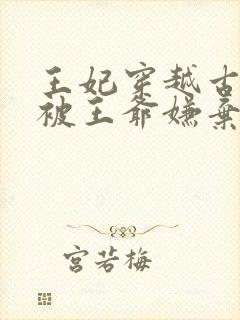 王妃穿越古
被王爷嫌弃
宫若梅